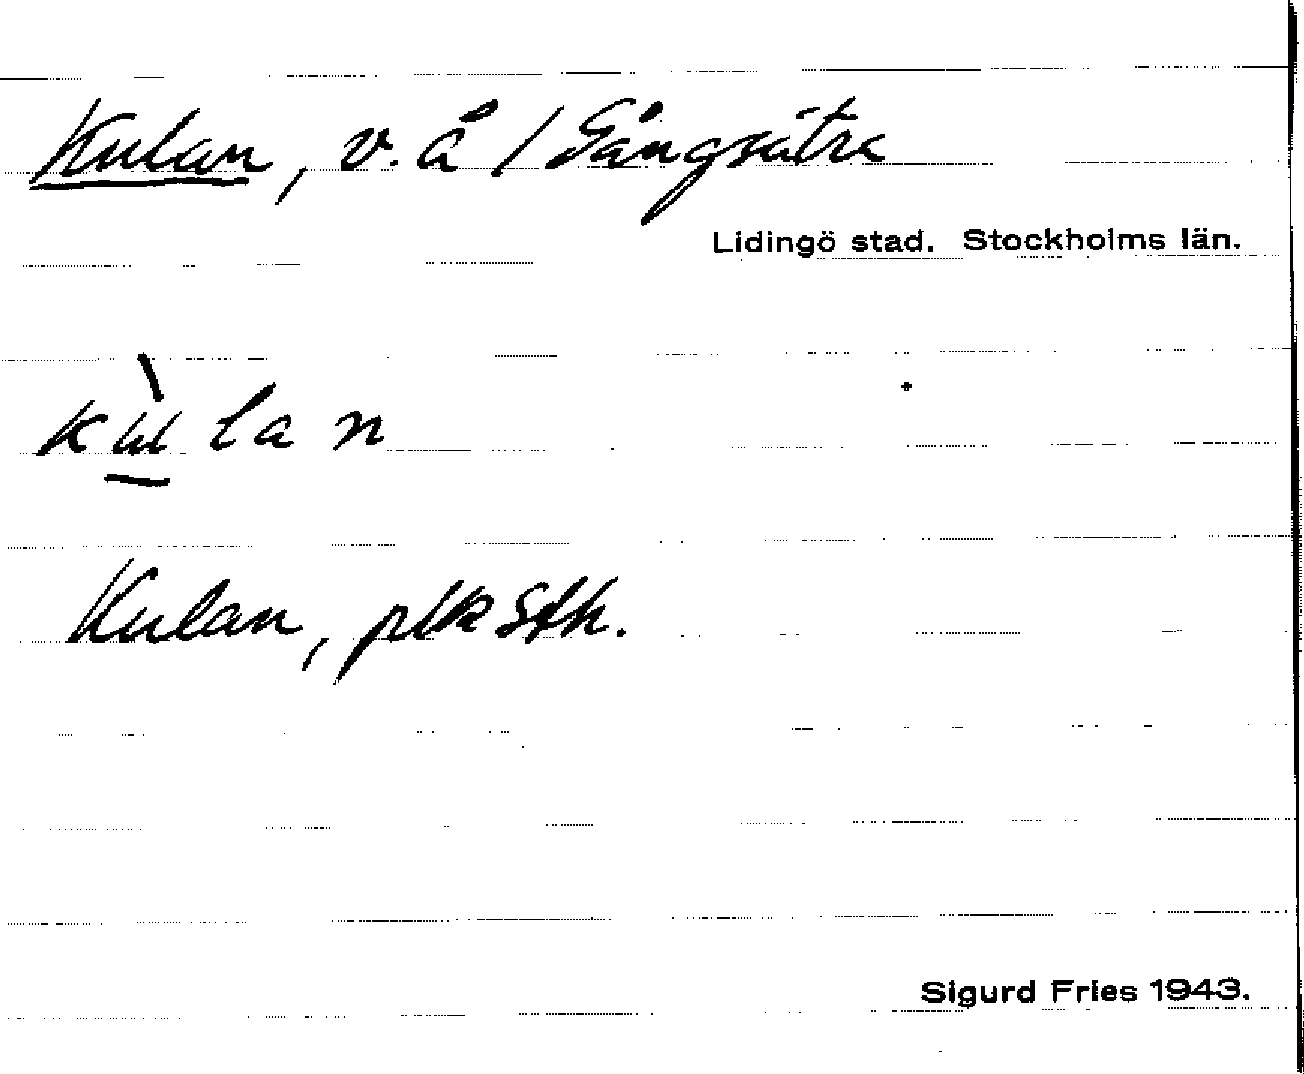 Kulan, v. å / Gångsätra
Lidingö stad. Stockholms län.
kùlan
Kulan, plk Sth.
Sigurd Fries 1943.